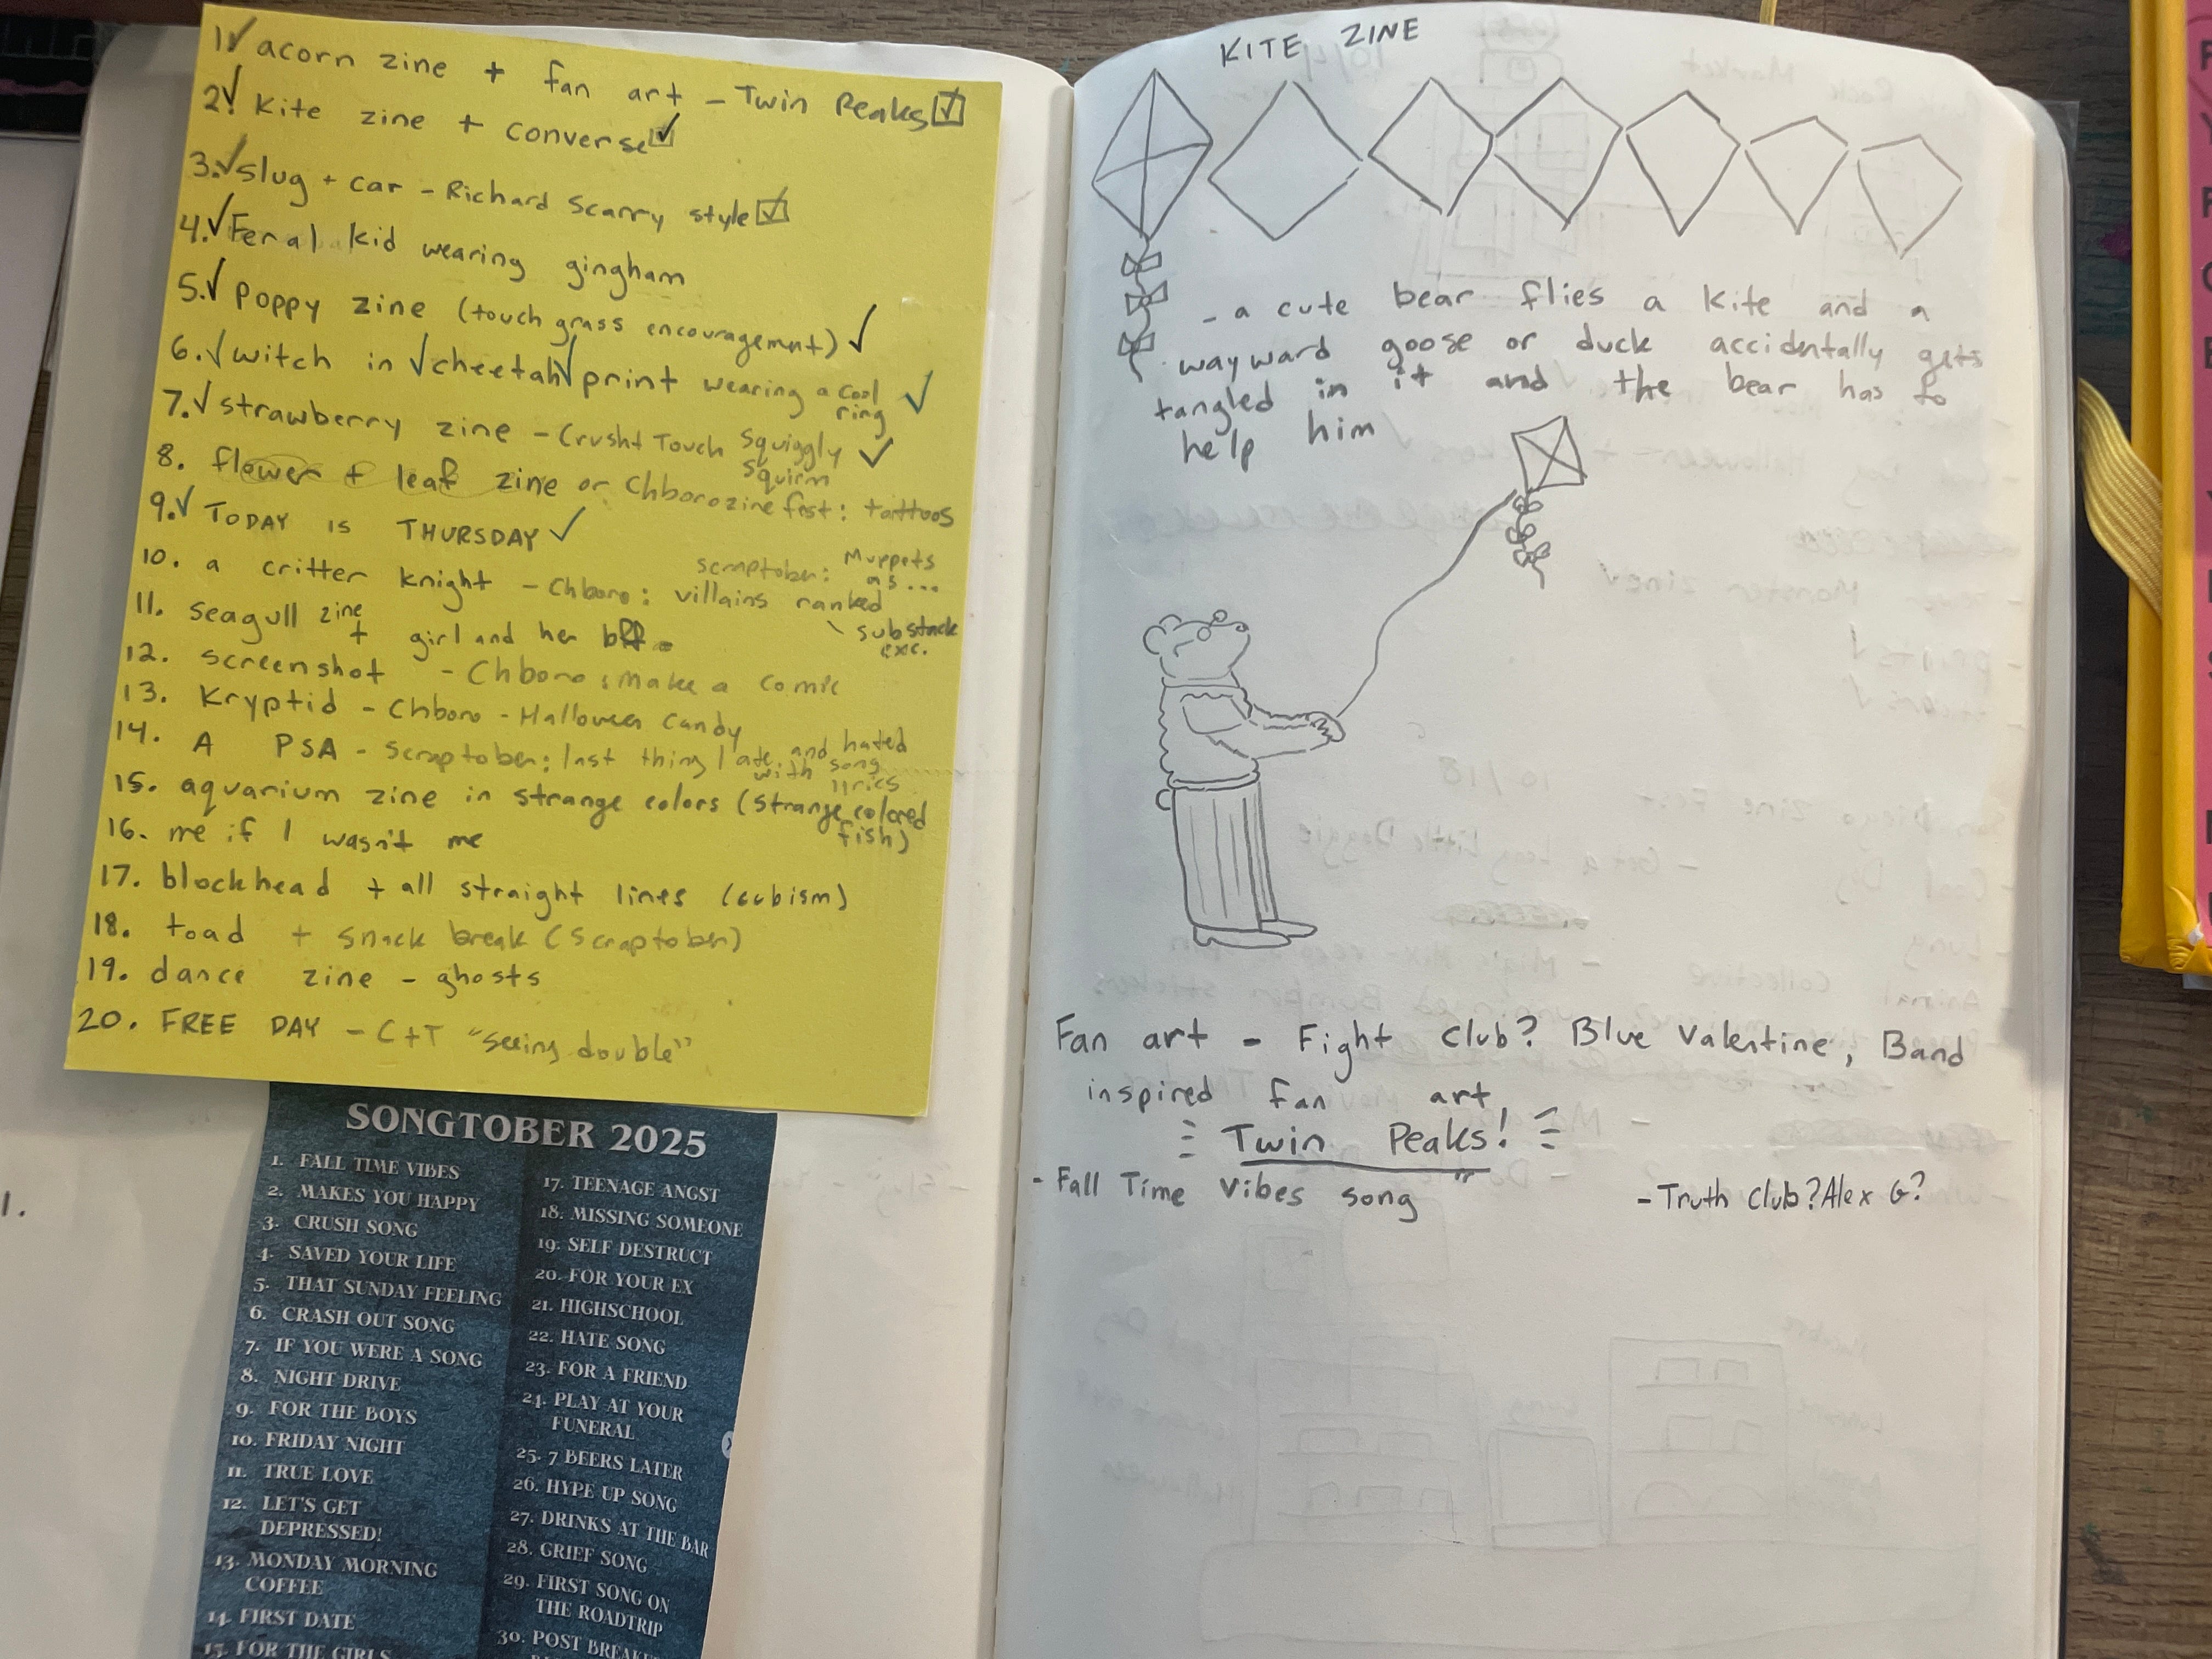 1.✓ acorn zine + fan art - Twin Peaks ☑
2.✓ Kite zine + converse ☑
3.✓ slug + car - Richard Scarry style ☑
4.✓ Feral kid wearing gingham
5.✓ poppy zine (touch grass encouragement) ✓
6.✓ witch in ✓cheetah✓ print wearing a cool ring ✓
7.✓ strawberry zine - Crush+Touch Squiggly Squirm ✓
8. flower + leaf zine or Chborozinefest: tattoos
9.✓ TODAY IS THURSDAY ✓
scraptober: Muppets as...
10. a critter knight - Chboro: villains ranked
substack exc.
11. seagull zine + girl and her bff
12. screenshot - Chboro: make a comic
13. Kryptid - Chboro - Halloween candy
14. A PSA - Scraptober: last thing I ate and hated with song lyrics
15. aquarium zine in strange colors (strange colored fish)
16. me if I wasn't me
17. blockhead + all straight lines (cubism)
18. toad + snack break (Scraptober)
19. dance zine - ghosts
20. FREE DAY - C+T "seeing double"
SONGTOBER 2025
1. FALL TIME VIBES
2. MAKES YOU HAPPY
3. CRUSH SONG
4. SAVED YOUR LIFE
5. THAT SUNDAY FEELING
6. CRASH OUT SONG
7. IF YOU WERE A SONG
8. NIGHT DRIVE
9. FOR THE BOYS
10. FRIDAY NIGHT
11. TRUE LOVE
12. LET'S GET
DEPRESSED!
13. MONDAY MORNING
COFFEE
14. FIRST DATE
15. FOR THE GIRLS
17. TEENAGE ANGST
18. MISSING SOMEONE
19. SELF DESTRUCT
20. FOR YOUR EX
21. HIGHSCHOOL
22. HATE SONG
23. FOR A FRIEND
24. PLAY AT YOUR
FUNERAL
25. 7 BEERS LATER
26. HYPE UP SONG
27. DRINKS AT THE BAR
28. GRIEF SONG
29. FIRST SONG ON
THE ROADTRIP
30. POST
1.
KITE ZINE
- a cute bear flies a kite and a
wayward goose or duck accidentally gets
tangled in it and the bear has to
help him
Fan art - Fight Club? Blue Valentine, Band
inspired fan art
Twin Peaks!
- Fall Time Vibes song
- Truth Club? Alex G?